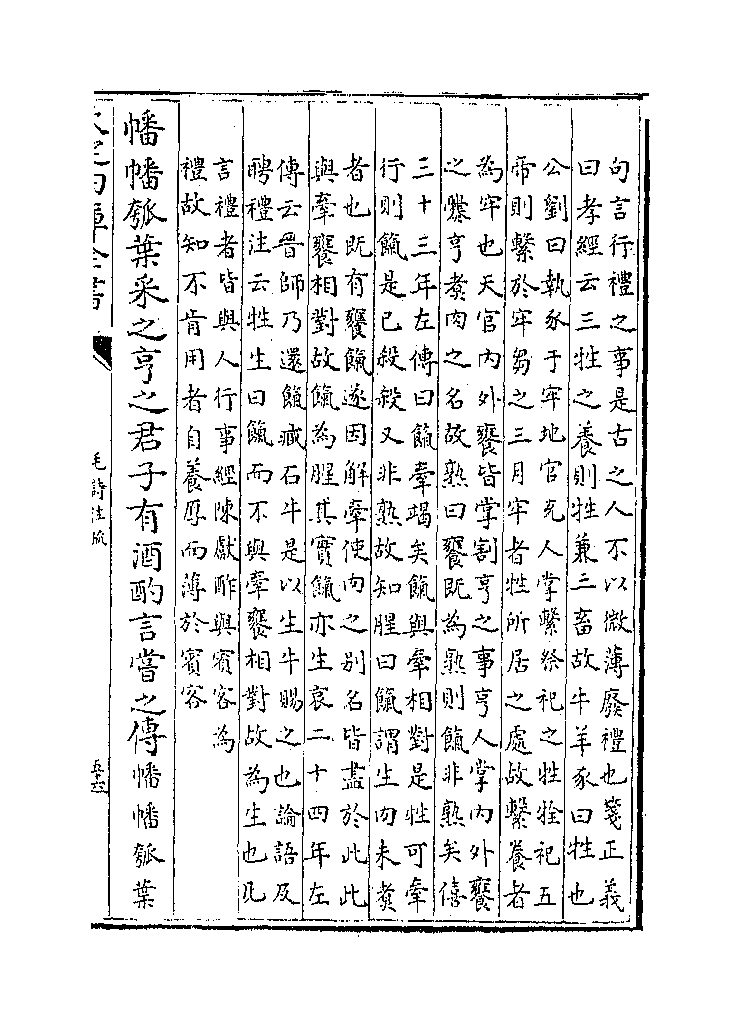 句言行禮之事是古之人不以微薄廢禮也箋正義
曰孝經云三牲之養則牲兼三畜故牛羊豕曰牲也
公劉曰執豕于牢地官充人掌繫祭祀之牲牷祀五
帝則繫於牢芻之三月牢者牲所居之處故繫養者
為牢也天官内外饔皆掌割亨之事亨人掌内外饔
之爨亨煑肉之名故熟曰饔既為熟則餼非熟矣僖
三十三年左傳曰餼牽竭矣餼與牽相對是牲可牽
行則餼是已殺殺又非熟故知腥曰餼謂生肉未煑
者也既有饔餼遂因解牽使肉之别名皆盡於此此
與牽饔相對故餼為腥其實餼亦生哀二十四年左
傳云晉師乃還餼臧石牛是以生牛賜之也論語及
聘禮注云牲生曰餼而不與牽饔相對故為生也此
言禮者皆與人行事經陳獻酢與賓客為
禮故知不肯用者自養厚而薄於賓客
幡幡瓠葉采之亨之君子有酒酌言嘗之傳幡幡瓠葉
欽定四庫全書
毛詩注疏
五十六